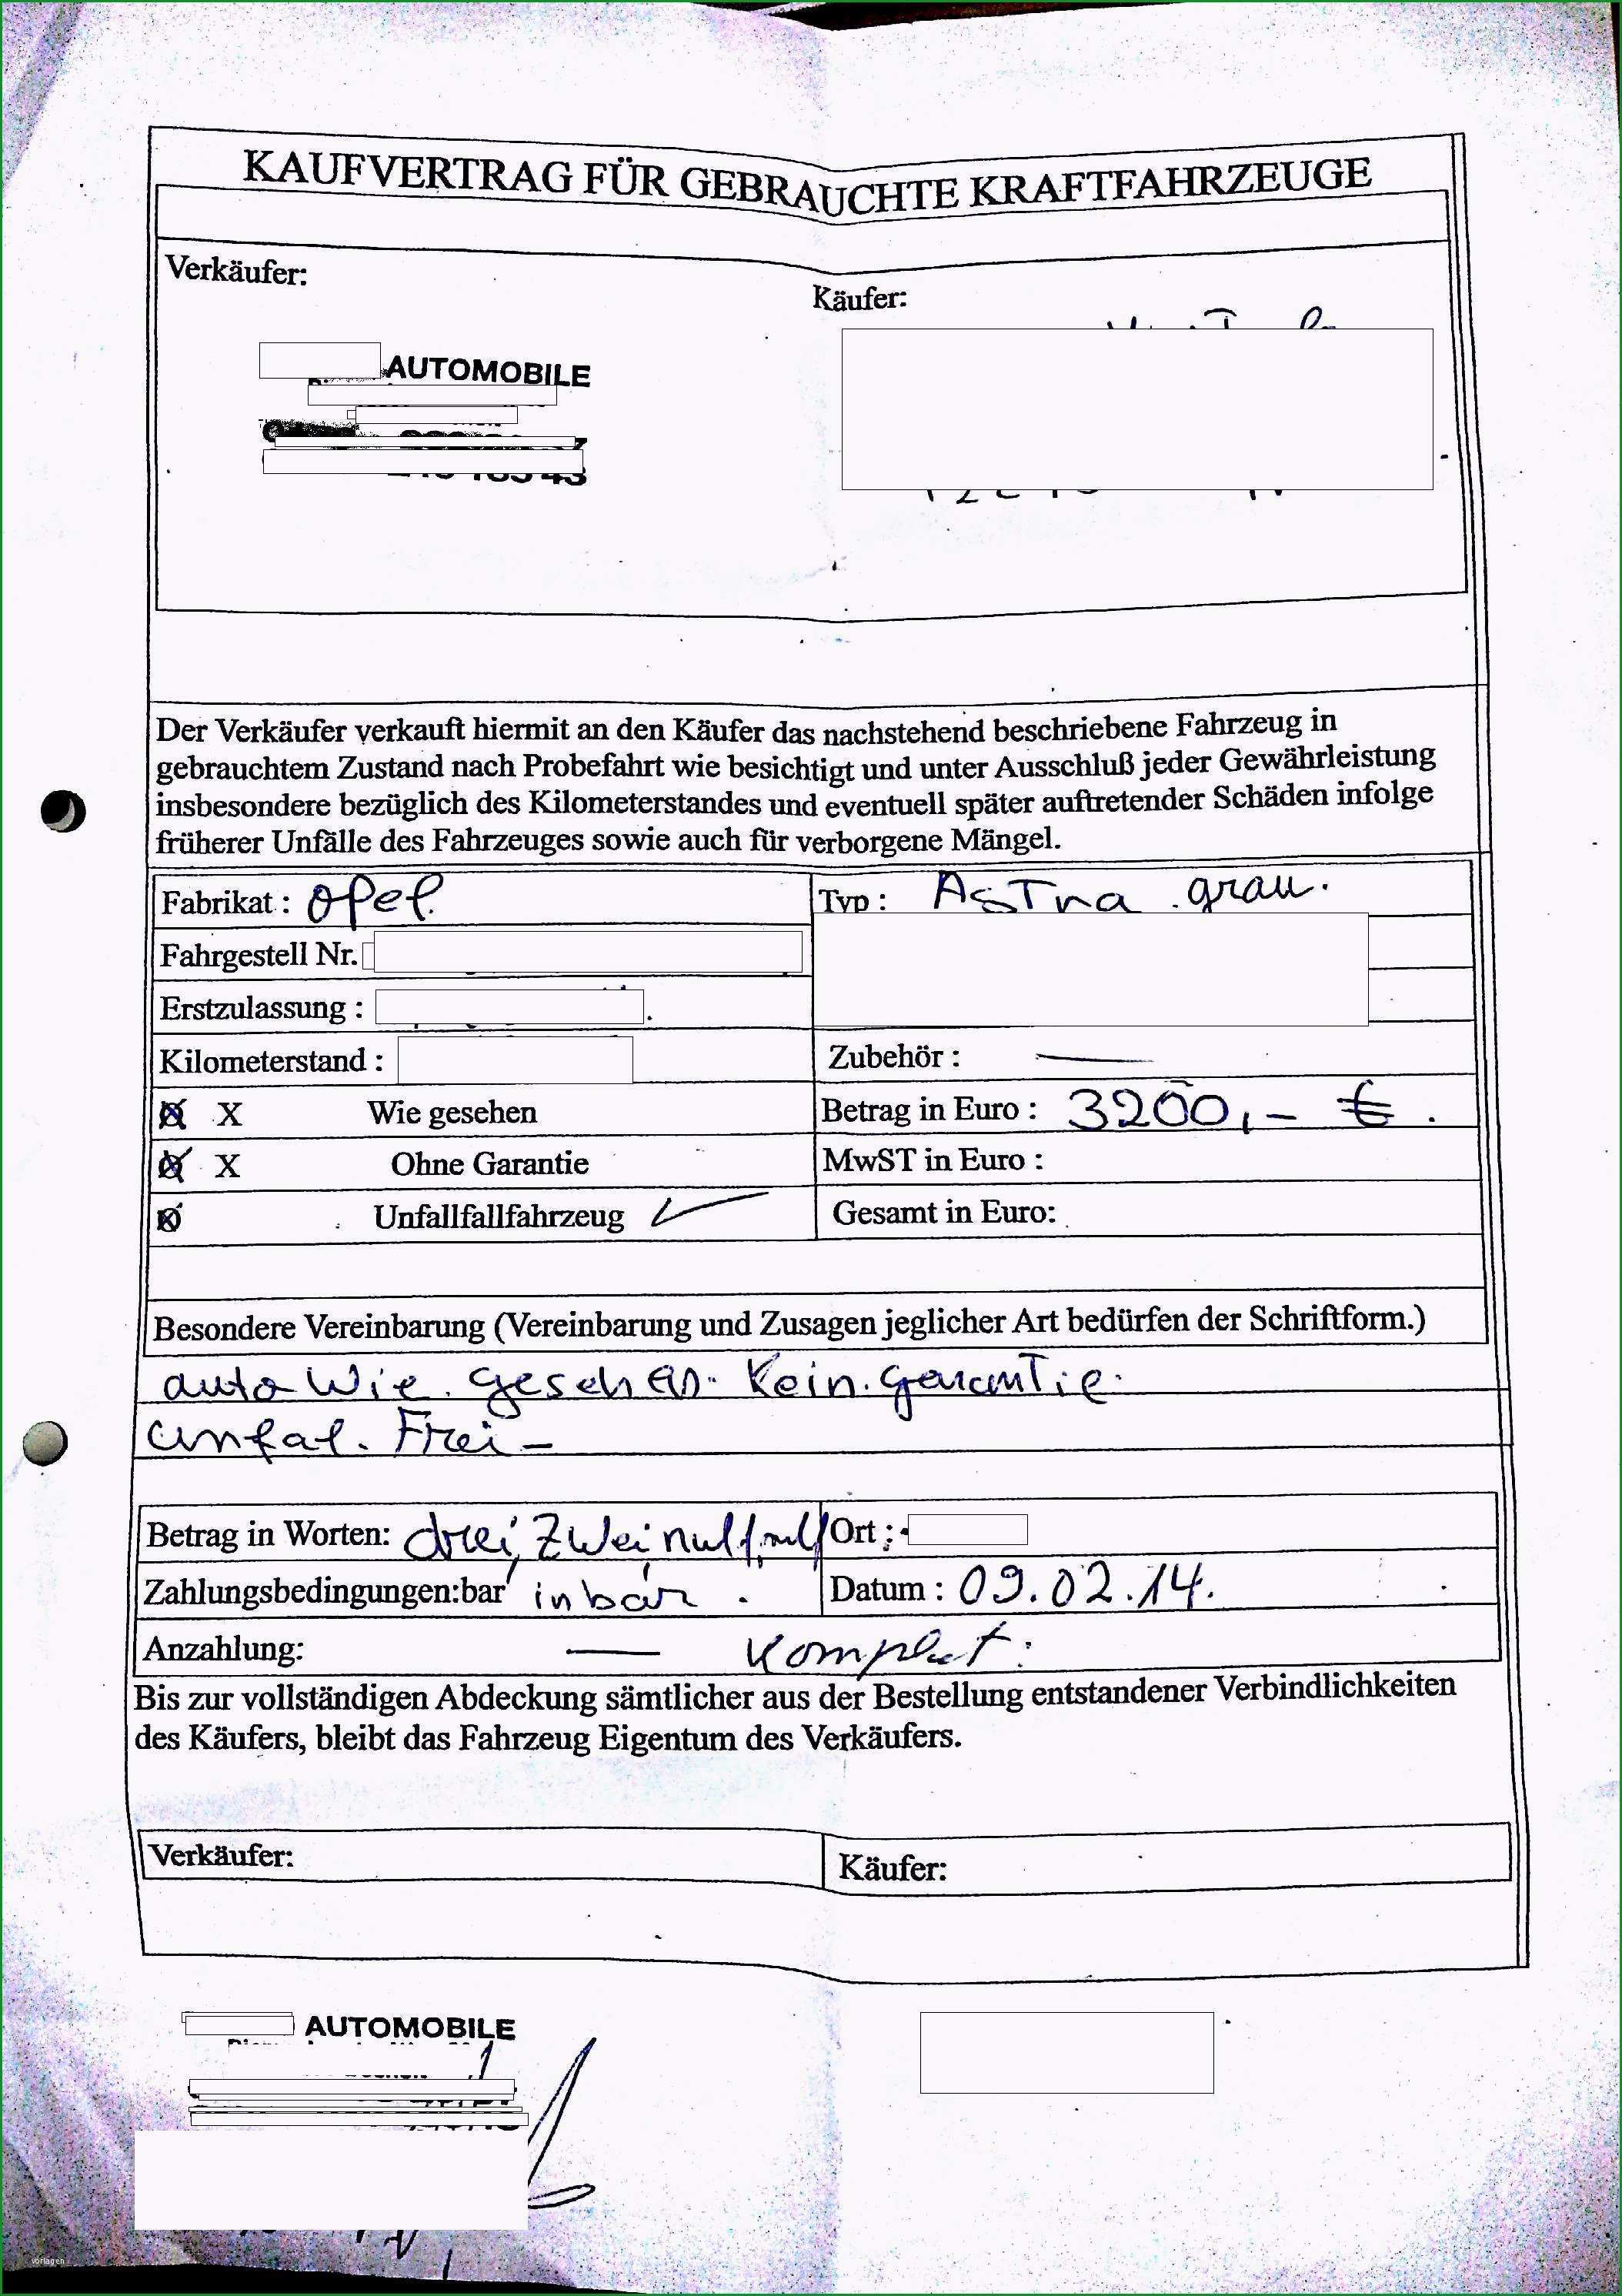 KAUFVERTRAG FÜR GEBRAUCHTE KRAFTFAHRZEUGE
Verkäufer:
Käufer:
AUTOMOBILE
Der Verkäufer verkauft hiermit an den Käufer das nachstehend beschriebene Fahrzeug in
gebrauchtem Zustand nach Probefahrt wie besichtigt und unter Ausschluß jeder Gewährleistung
insbesondere bezüglich des Kilometerstandes und eventuell später auftretender Schäden infolge
früherer Unfälle des Fahrzeuges sowie auch für verborgene Mängel.
Fabrikat : Opel. Typ : Astra . grau.
Fahrgestell Nr.
Erstzulassung :
Kilometerstand : Zubehör : —
X Wie gesehen Betrag in Euro : 3200,- € .
X Ohne Garantie MwST in Euro :
Unfallfallfahrzeug Gesamt in Euro:
Besondere Vereinbarung (Vereinbarung und Zusagen jeglicher Art bedürfen der Schriftform.)
auto wie. gesehen. Kein. garantie.
unfal. Frei –
Betrag in Worten: drei, zwei null, null Ort :
Zahlungsbedingungen:bar in bar . Datum : 09.02.14.
Anzahlung: — Komplet.
Bis zur vollständigen Abdeckung sämtlicher aus der Bestellung entstandener Verbindlichkeiten
des Käufers, bleibt das Fahrzeug Eigentum des Verkäufers.
Verkäufer: Käufer:
AUTOMOBILE
vorlagen